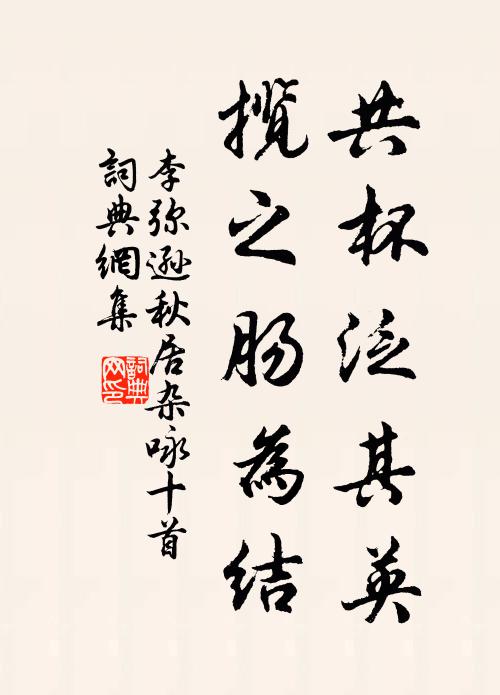 共杯泛其英
揽之肠为结
李弥逊秋居杂咏十首
词典网集
詞典網印